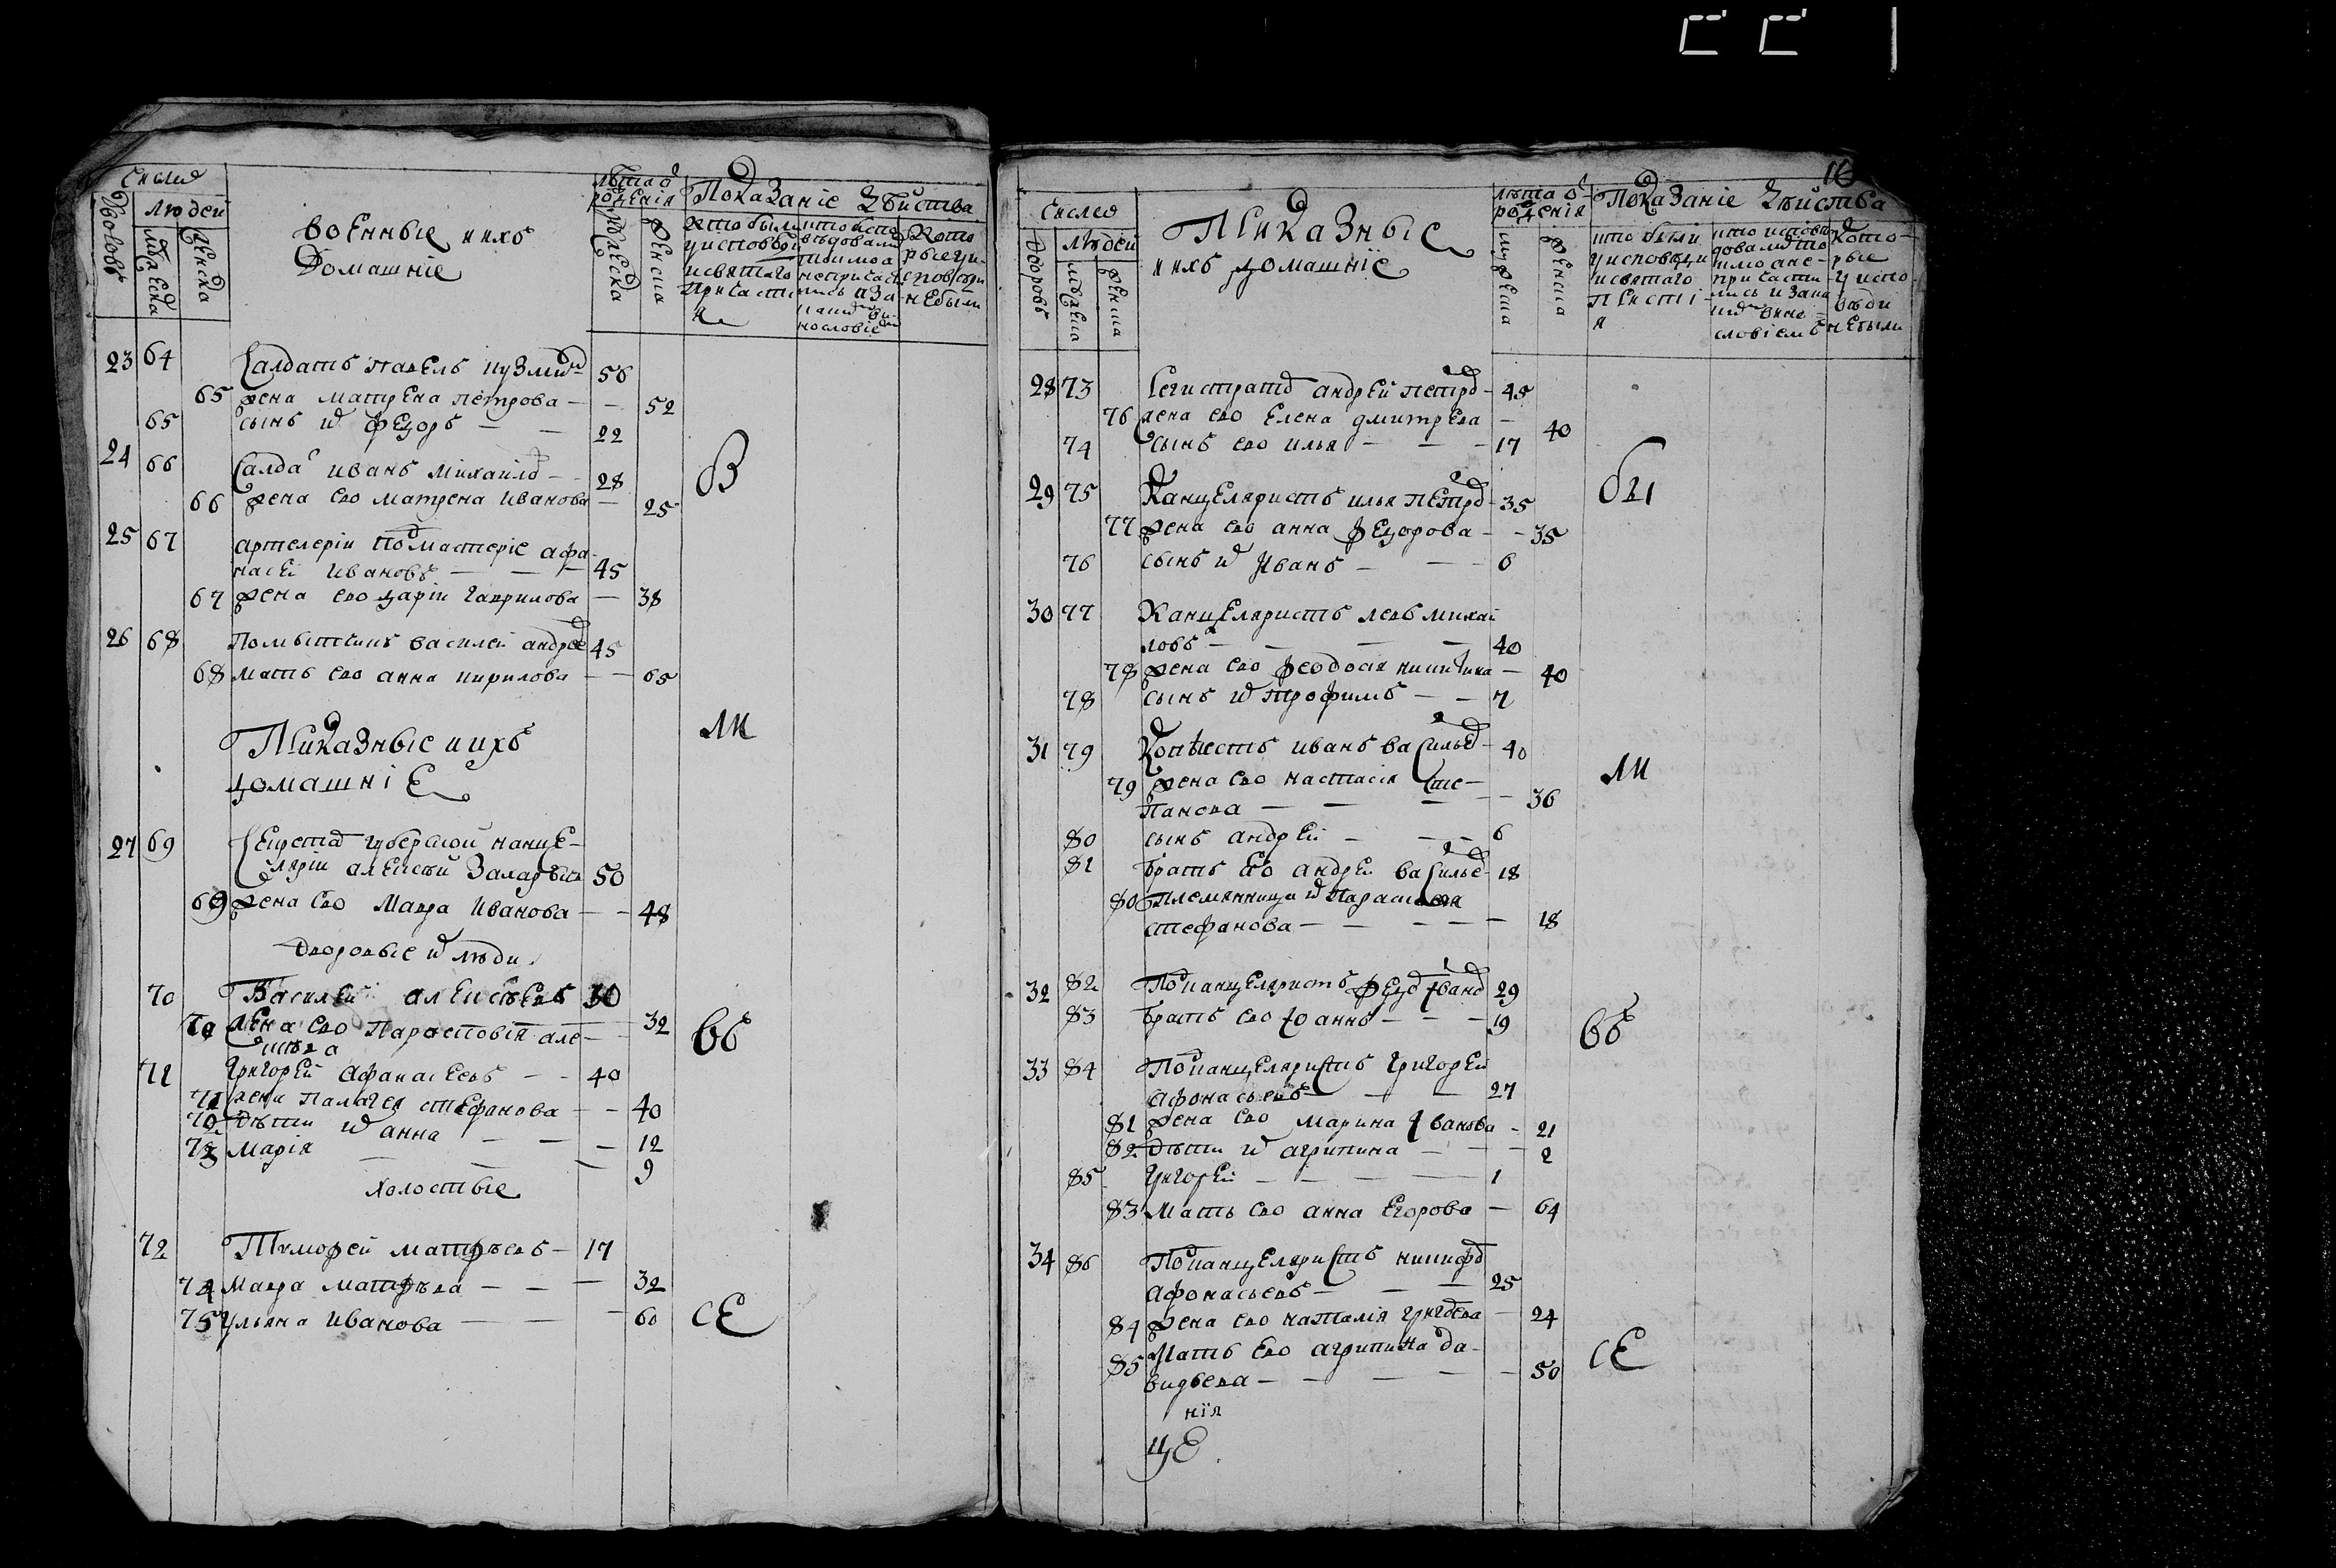 Число
Дворовъ
людей
мужеска
женска
военные и ихъ
Домашние
лѣта от рождения
мужеска
женска
Показание действа
кто были у исповеди и святаго причастия
кто исповедовались токмо а не причастились и за каким винословием
Которые у исповеди не были
23 64 Салдатъ павелъ кузмин 56
65 жена матрена петрова — — 52
65 сынъ их федоръ — — 22
24 66 Салдат иванъ михаилов — 28
66 жена ево матрена иванова — 25
25 67 артелерии подмастерie афа-
насеи ивановъ — — — 45
67 жена ево дарiи гаврилова — 38
26 68 василеи андрее 45
68 мать ево анна кирилова — — 65
В
ли
Приказные и ихъ
домашнiе
27 69 Секретар губернской канце-
лярiи алексеи 50
69 жена ево мавра иванова — — 48
дворовые их люди
70 Василеи алексѣевъ 30
70 жена ево парасковiя але- — 32
ксѣева
71 григореи афанасеевъ — — 40
71 жена палагея стефанова — — 40
72 дѣти их анна — — — 12
73 марiя — — — 9
холостые
72 Тимофеи матфѣевъ — 17
74 мавра матфѣева — — — 32
75 ульяна иванова — — — 60
въ
СЕ
16
Число
Дворовъ
людей
мужеска
женска
Приказные
и ихъ домашнiе
лѣта от рождения
мужеска
женска
Показанiе дѣиства
кто были у исповѣди и святаго причастi-
я
кто исповѣдовались токмо а не причастились и за каким винословiемъ
которые у исповѣди не были
28 73 Регистратор андреи петров — 45
76 жена ево елена дмитрева — 40
74 сынъ ево илья — — — 17
29 75 Канцеляристъ илья петров — 35
77 жена ево анна федорова — — 35
76 сынъ их иванъ — — — 6
30 77 Канцеляристъ левъ михаи
ловъ — — — 40
78 жена ево феодосiя никитина — 40
78 сынъ их трофимъ — — 7
31 79 Копѣистъ иванъ васильев — 40
79 жена ево настасiя сте-
панова — — — — 36
80 сынъ андреи — — — 6
81 братъ ево андреи васильев — 18
80 племянница их парасковя
стефанова — — — — — 18
32 82 Подканцеляристъ федор иванов 29
83 братъ ево иоаннъ — — — 19
33 84 Подканцеляристъ григореи
афонасьевъ — — — 27
81 жена ево марина иванова — 21
82 дѣти их агрипина — — — 2
85 григореи — — — — 1
83 мать ево анна егорова — 64
34 86 Подканцеляристъ никифор
афонасьевъ — — — 25
84 жена ево наталiя григорева — 24
85 мать ево агрипина да-
видьева — — — — — 50
нiя
це
ли
въ
СЕ